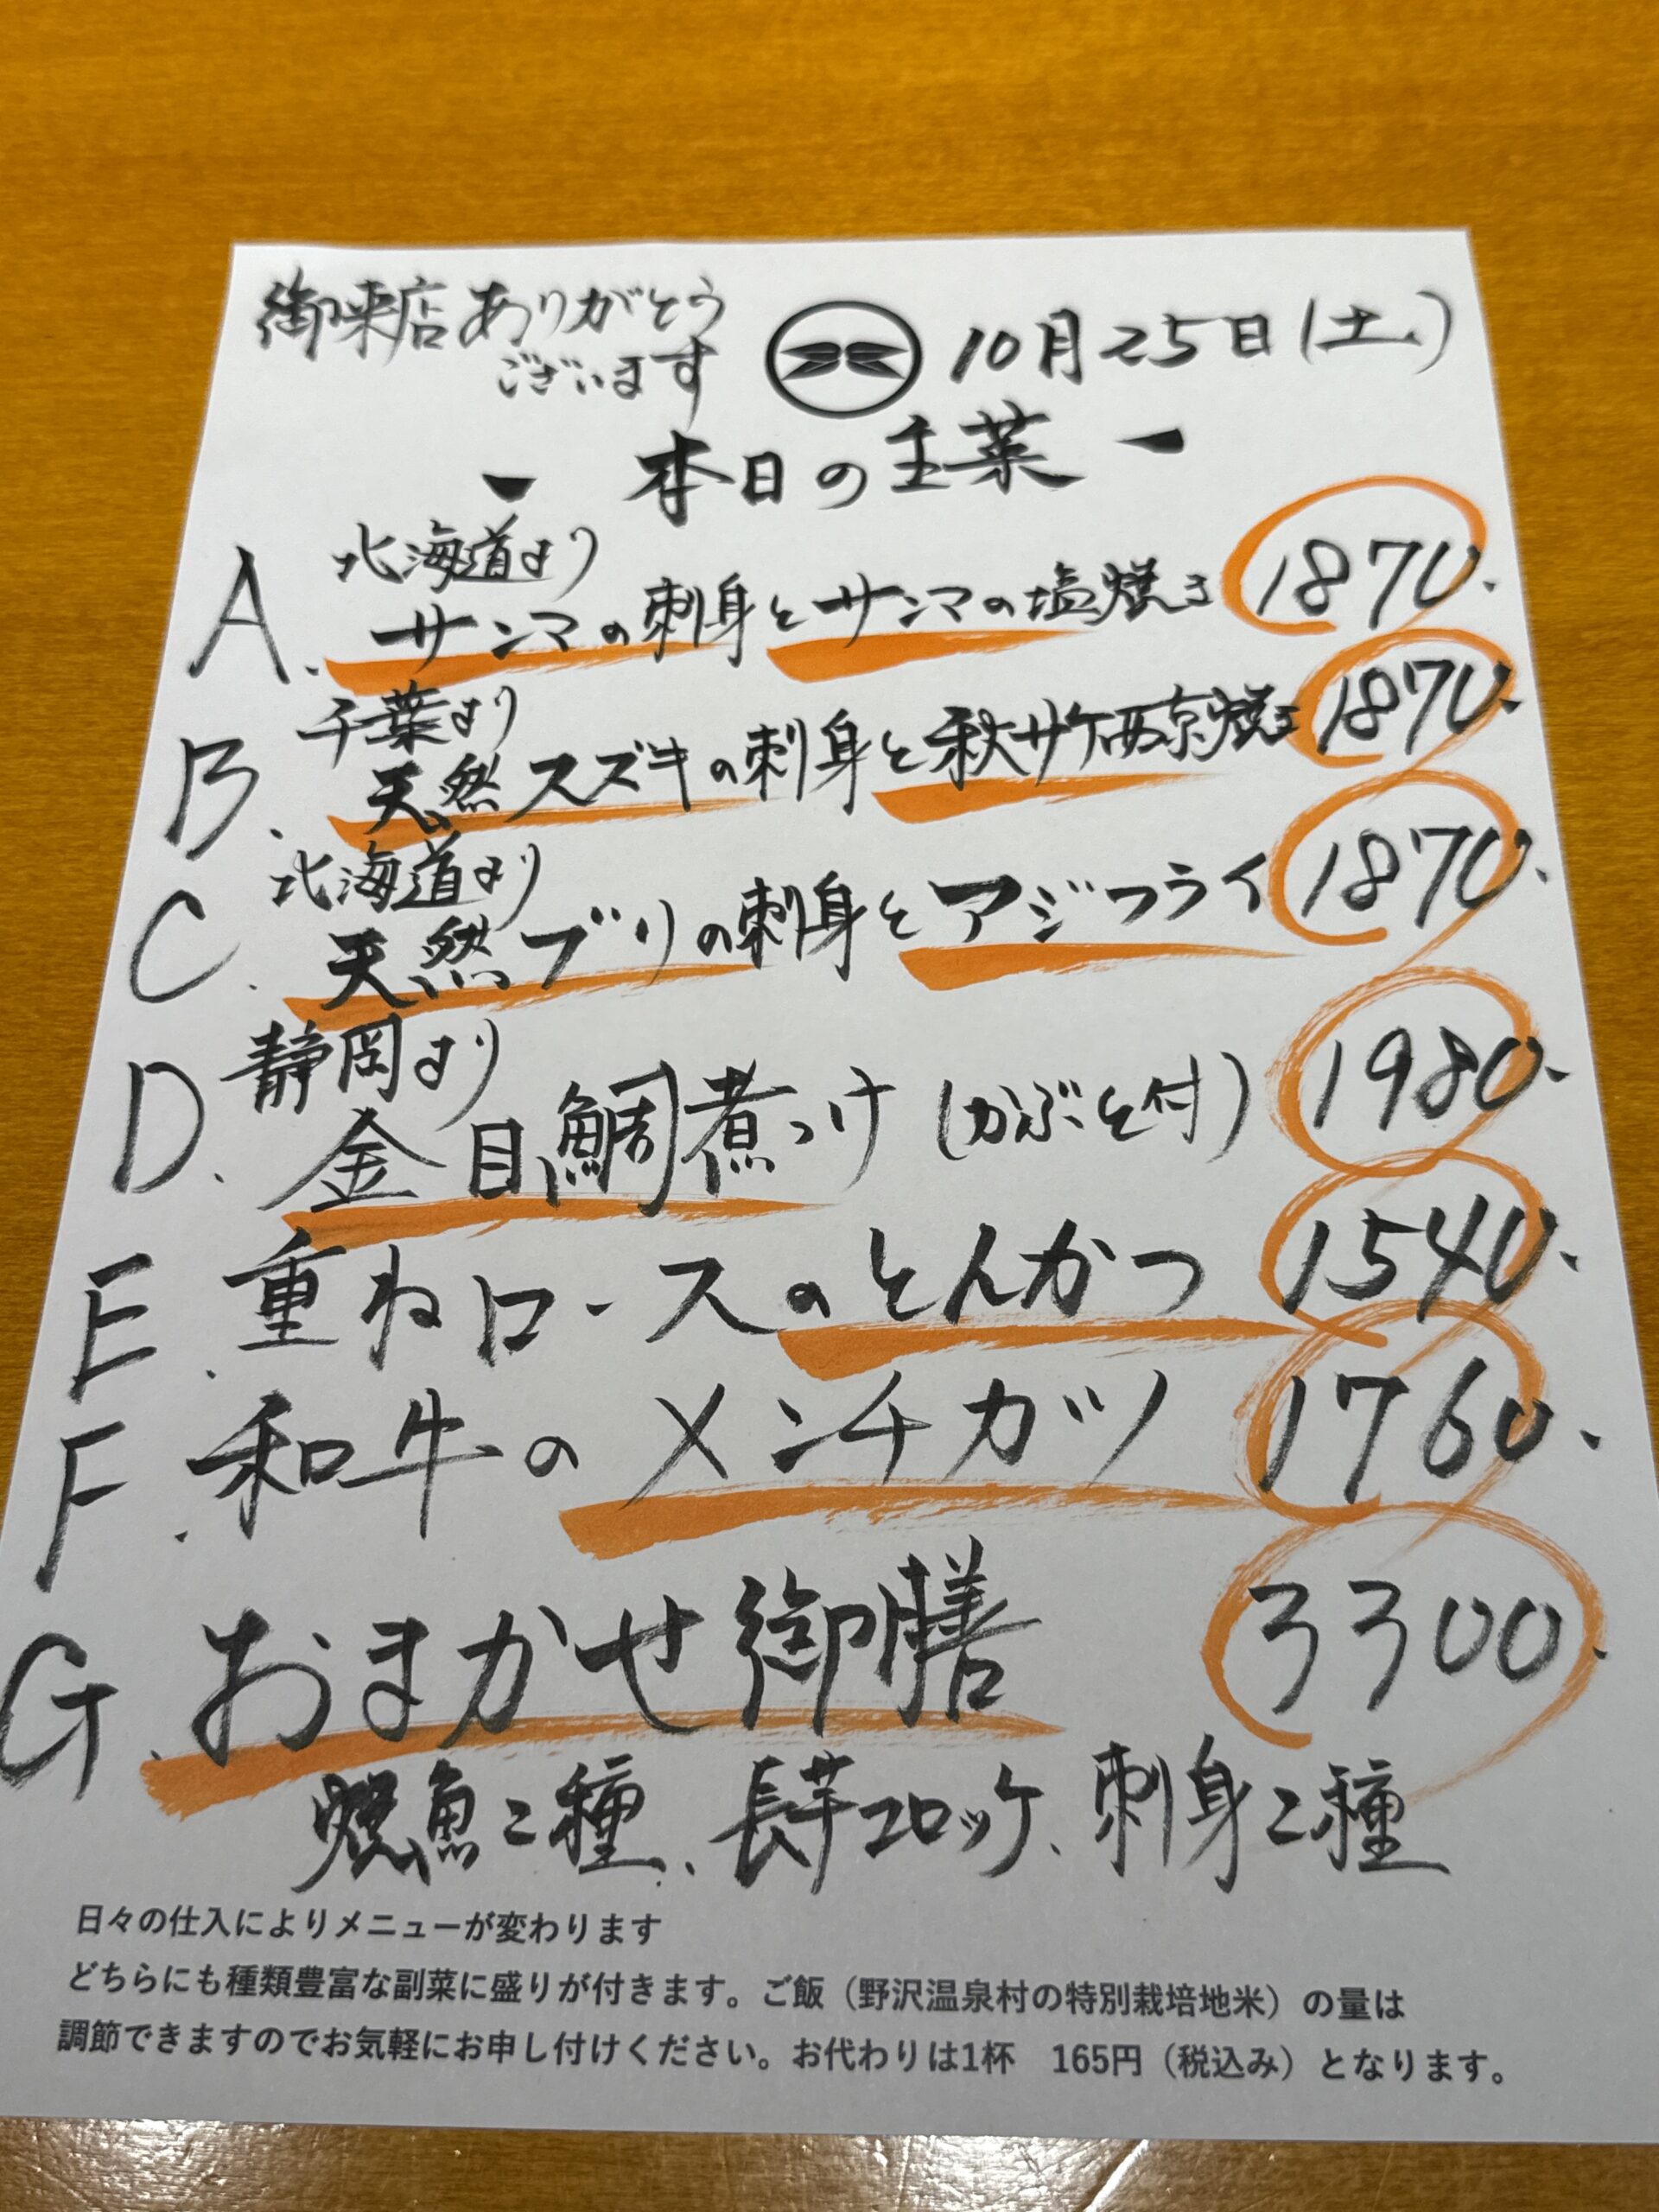 御来店ありがとう
ございます
10月25日(土)
- 本日の主菜 -
北海道より
A. サンマの刺身とサンマの塩焼き 1870.
千葉より
B. 天然スズキの刺身と秋サケ西京焼き 1870.
北海道より
C. 天然ブリの刺身とアジフライ 1870.
静岡より
D. 金目鯛煮つけ(かぶと付) 1980.
E. 重ねロースのとんかつ 1540.
F. 和牛のメンチカツ 1760.
G. おまかせ御膳 3300.
焼魚二種、長芋コロッケ、刺身二種
日々の仕入によりメニューが変わります
どちらにも種類豊富な副菜に盛りが付きます。ご飯(野沢温泉村の特別栽培地米)の量は
調節できますのでお気軽にお申し付けください。お代わりは1杯 165円(税込み)となります。